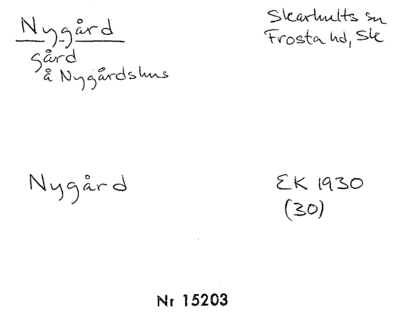 Nygård
gård
å Nygårdshus
Skarhults sn
Frosta hd, Sk
Nygård
EK 1930
(30)
Nr 15203